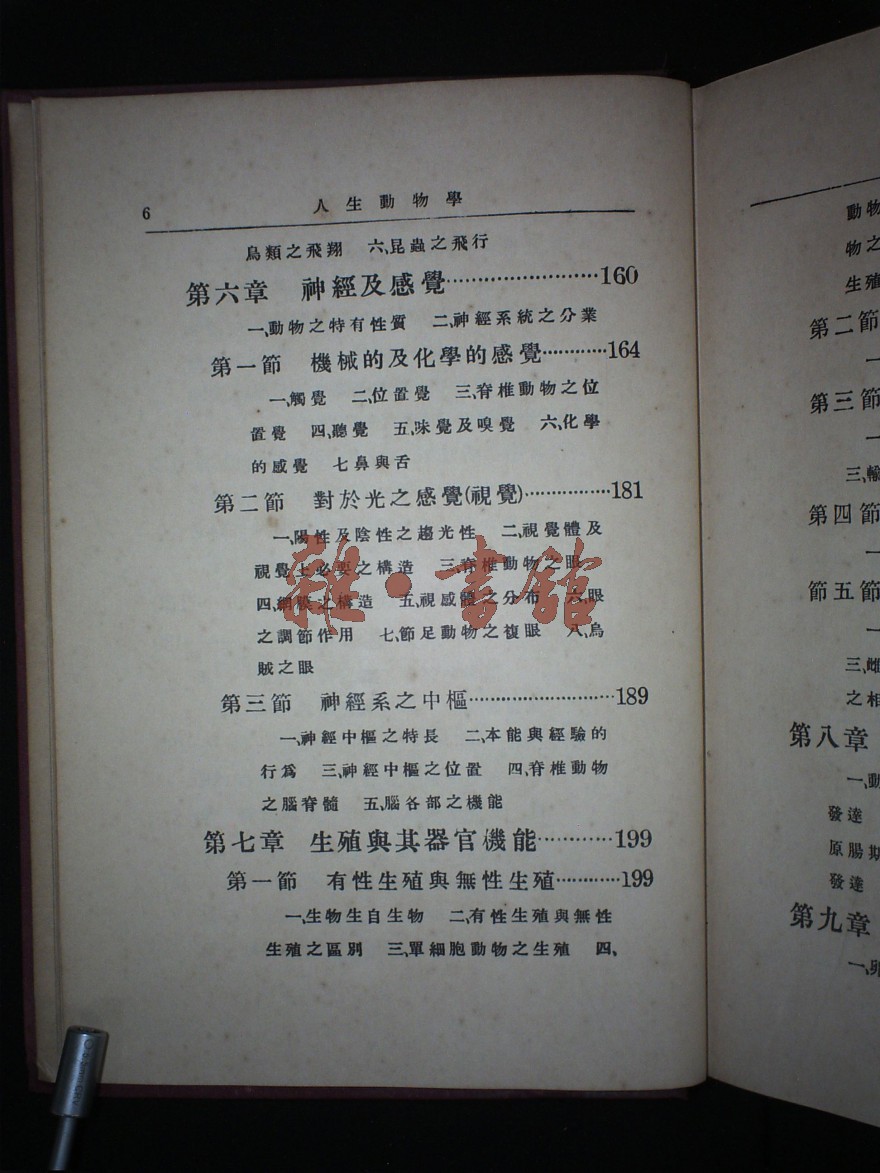 6 人生動物學
鳥類之飛翔 六、昆蟲之飛行
第六章 神經及感覺························160
一、動物之特有性質 二、神經系統之分業
第一節 機械的及化學的感覺············164
一、觸覺 二、位置覺 三、脊椎動物之位
置覺 四、聽覺 五、味覺及嗅覺 六、化學
的感覺 七鼻與舌
第二節 對於光之感覺(視覺)················181
一、陽性及陰性之趨光性 二、視覺體及
視覺上必要之構造 三、脊椎動物之眼
四、網膜之構造 五、視感體之分布 六、眼
之調節作用 七、節足動物之複眼 八、烏
賊之眼
第三節 神經系之中樞··························189
一、神經中樞之特長 二、本能與經驗的
行爲 三、神經中樞之位置 四、脊椎動物
之腦脊髓 五、腦各部之機能
第七章 生殖與其器官機能············199
第一節 有性生殖與無性生殖············199
一、生物生自生物 二、有性生殖與無性
生殖之區別 三、單細胞動物之生殖 四、
雜·書館
動物
物之
生殖
第二節
一
第三節
一
三、輸
第四節
一
第五節
一
三、雌
之相
第八章
一、動
發達
原腸期
發達
第九章
一、卵